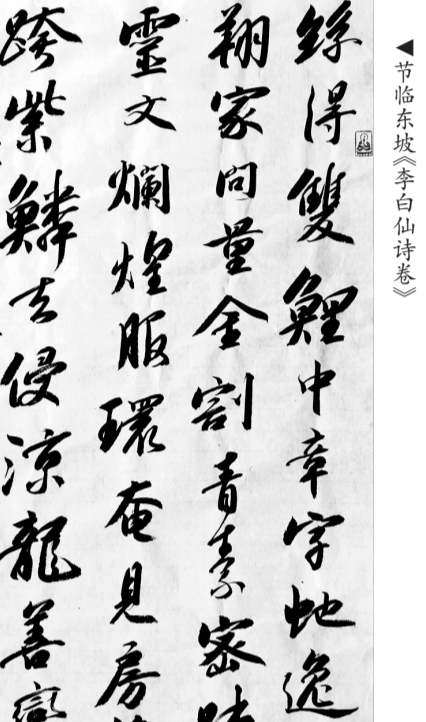 ◀节临东坡《李白仙诗卷》
絲得雙鯉中章字虵逸
翔家問量金割青素密
靈文爛煌服環奄見房
跨紫鱗去侵涼龍善